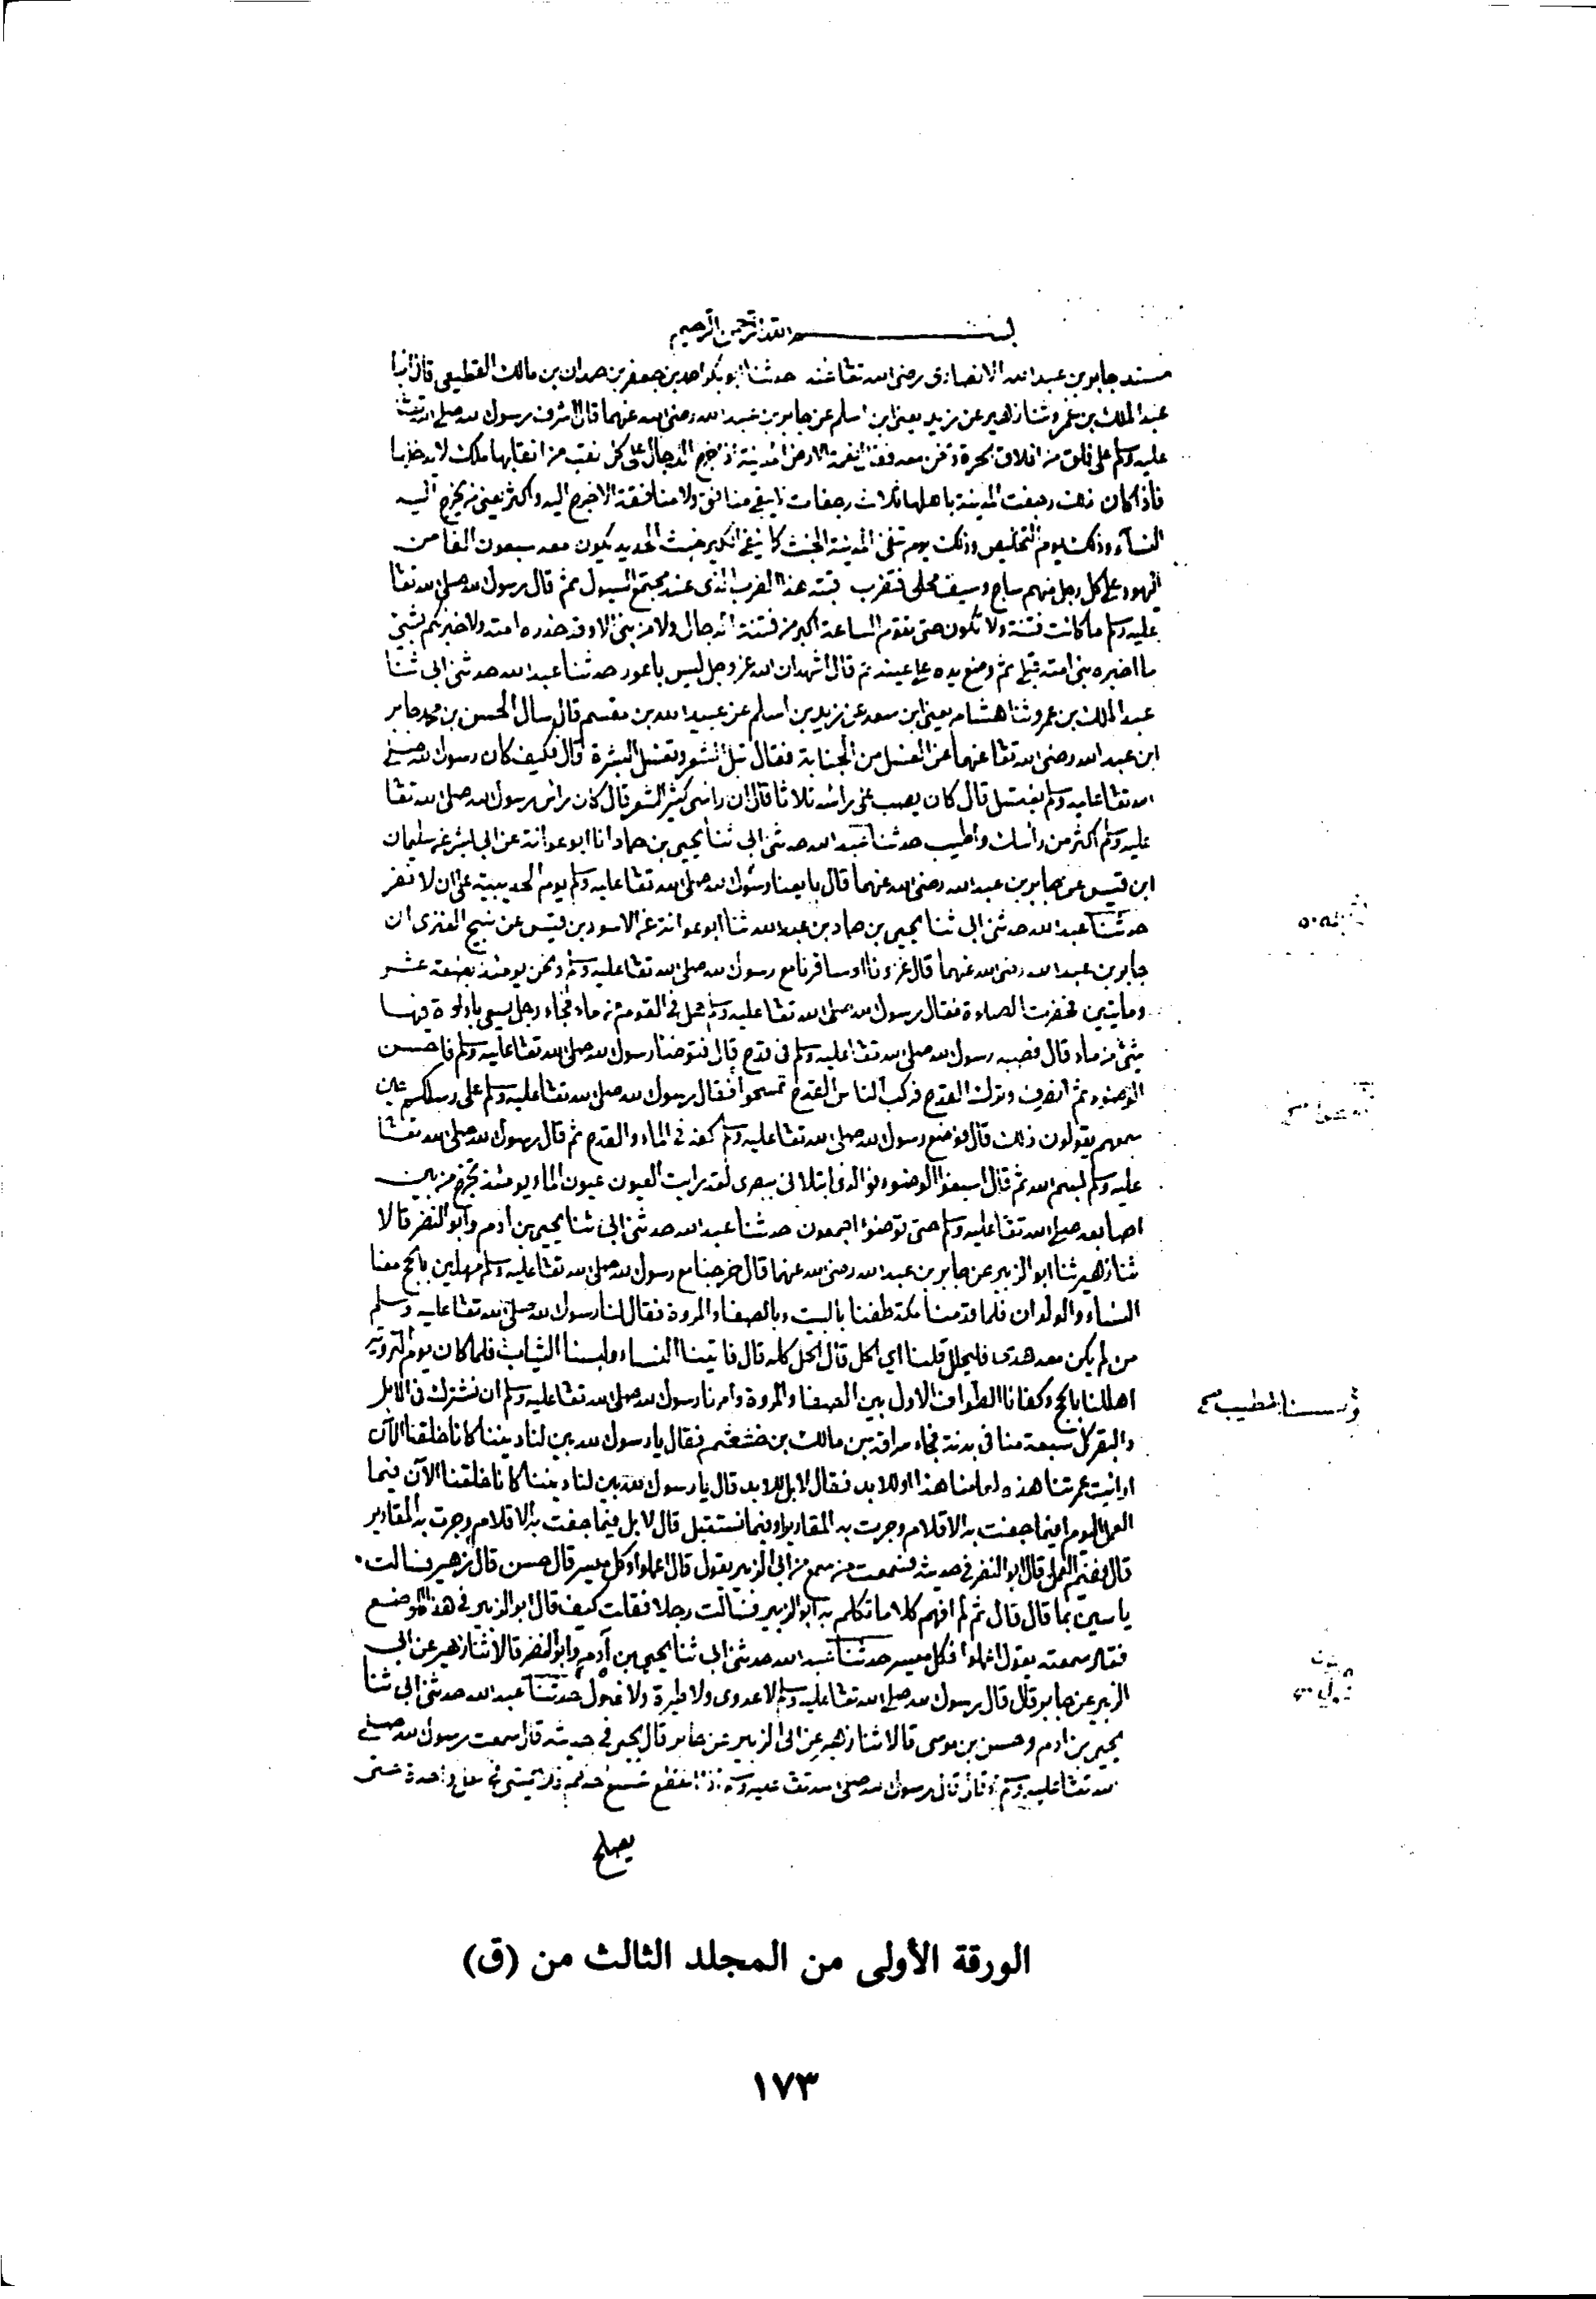 بسم الله الرحمن الرحيم
مسند جابر بن عبد الله الانصاري رضي الله تعا عنه حدثنا ابو بكر احمد بن جعفر بن حمدان بن مالك القطيعي قال
عبد الملك بن عمرو ثنا زهير عن زيد يعني ابن اسلم عن جابر بن عبد الله رضي الله عنهما قال اشرف رسول الله صلى الله تعا
عليه وسلم على فلق من افلاق الحرة ونحن معه فقال نعمة الارض المدينة اذا خرج الدجال على كل نقب من انقابها ملك لا يدخلها
فاذا كان ذلك رجفت المدينة باهلها ثلاث رجفات لا يبقى منافق ولا منافقة الا خرج اليه واكثر يعني من يخرج اليه
النساء وذلك يوم التخليص وذلك يوم تنفي المدينة الخبث كما ينفي الكير خبث الحديد يكون معه سبعون الفا من
اليهود على كل رجل منهم ساج وسيف محلى فتضرب قبته بهذا الضرب الذي عند مجتمع السيول ثم قال رسول الله صلى الله تعا
عليه وسلم ما كانت فتنة ولا تكون حتى تقوم الساعة اكبر من فتنة الدجال ولا من نبي الا وقد حذره امته ولاخبرنكم بشيئ
ما اخبره نبي امته قبلي ثم وضع يده على عينه ثم قال اشهد ان الله عز وجل ليس باعور حدثنا عبد الله حدثني ابي ثنا
عبد الملك بن عمرو ثنا هشام يعني ابن سعد عن زيد بن اسلم عن عبيد الله بن مقسم قال سال الحسن بن محمد جابر
ابن عبد الله رضي الله تعا عنهما عن الغسل من الجنابة فقال تبل الشعر وتغسل البشرة قال فكيف كان رسول الله صلى
الله تعا عليه وسلم يغتسل قال كان يصب على راسه ثلاثا قال ان راسي كثير الشعر قال كان راس رسول الله صلى الله تعا
عليه وسلم اكثر من رأسك واطيب حدثنا عبد الله حدثني ابي ثنا يحيى بن حماد انا ابو عوانة عن ابي بشر عن سليمان
ابن قيس عن جابر بن عبد الله رضي الله عنهما قال بايعنا رسول الله صلى الله تعا عليه وسلم يوم الحديبية على ان لا نفر
حدثنا عبد الله حدثني ابي ثنا يحيى بن حماد بن عبد الله ثنا ابو عوانة عن الاسود بن قيس عن نبيح العنزي ان
جابر بن عبد الله رضي الله عنهما قال غزونا او سافرنا مع رسول الله صلى الله تعا عليه وسلم ونحن يومئذ بضعة عشر
ومايتين فحضرت الصلوة فقال رسول الله صلى الله تعا عليه وسلم هل في القوم من ماء فجاء رجل يسعى باداوة فيها
شئ من ماء قال فصبه رسول الله صلى الله تعا عليه وسلم في قدح قال فتوضا رسول الله صلى الله تعا عليه وسلم فاحسن
الوضوء ثم انصرف وترك القدح فركب الناس القدح تمسحوا فقال رسول الله صلى الله تعا عليه وسلم على رسلكم حين
سمعهم يقولون ذلك قال فوضع رسول الله صلى الله تعا عليه وسلم كفه في الماء والقدح ثم قال رسول الله صلى الله تعا
عليه وسلم بسم الله ثم قال اسبغوا الوضوء فو الذي ابتلاني ببصري لقد رايت العيون عيون الماء يومئذ تخرج من بين
اصابعه صلى الله تعا عليه وسلم حتى توضؤا اجمعون حدثنا عبد الله حدثني ابي ثنا يحيى بن آدم وابو النضر قالا
ثنا زهير ثنا ابو الزبير عن جابر بن عبد الله رضي الله عنهما قال خرجنا مع رسول الله صلى الله تعا عليه وسلم مهلين بالحج معنا
النساء والولدان فلما قدمنا مكة طفنا بالبيت وبالصفا والمروة فقال لنا رسول الله صلى الله تعا عليه وسلم
من لم يكن معه هدى فليحلل قلنا اي الحل قال الحل كله قال فاتينا النساء ولبسنا الثياب فلما كان يوم التروية
ومسسنا الطيب صح
اهللنا بالحج وكفانا الطواف الاول بين الصفا والمروة وامرنا رسول الله صلى الله تعا عليه وسلم ان نشترك في الابل
والبقر كل سبعة منا في بدنة فجاء سراقة بن مالك بن جعشم فقال يا رسول الله بين لنا ديننا كانا خلقنا الآن
ارايت عمرتنا هذه لعامنا هذا او للابد فقال لا بل للابد قال يا رسول الله بين لنا ديننا كانا خلقنا الآن فيما
العمل اليوم افيما جفت به الاقلام وجرت به المقادير او فيما نستقبل قال لا بل فيما جفت به الاقلام وجرت به المقادير
قال ففيم العمل قال ابو النضر في حديثه فسمعت من سمع من ابي الزبير يقول قال اعملوا فكل ميسر قال حسن قال زهير فسالت
ياسين بما قال قال ثم لم افهم كلاما تكلم به ابو الزبير فسالت رجلا فقلت كيف قال ابو الزبير في هذا الموضع
فقال سمعته يقول اعملوا فكل ميسر حدثنا عبد الله حدثني ابي ثنا يحيى بن آدم وابو النضر قالا ثنا زهير عن ابي
الزبير عن جابر قال قال رسول الله صلى الله تعا عليه وسلم لا عدوى ولا طيرة ولا غول حدثنا عبد الله حدثني ابي ثنا
يحيى بن ادم وحسن بن موسى قالا ثنا زهير عن ابي الزبير عن جابر قال يحيى في حديثه قال سمعت رسول الله صلى
الله تعا عليه وسلم وقال قال رسول الله صلى الله تعا عليه وسلم اذا انقطع شسع احدكم فلا يمشي في نعل واحدة حتى
يصلح
الورقة الأولى من المجلد الثالث من (ق)
١٧٣